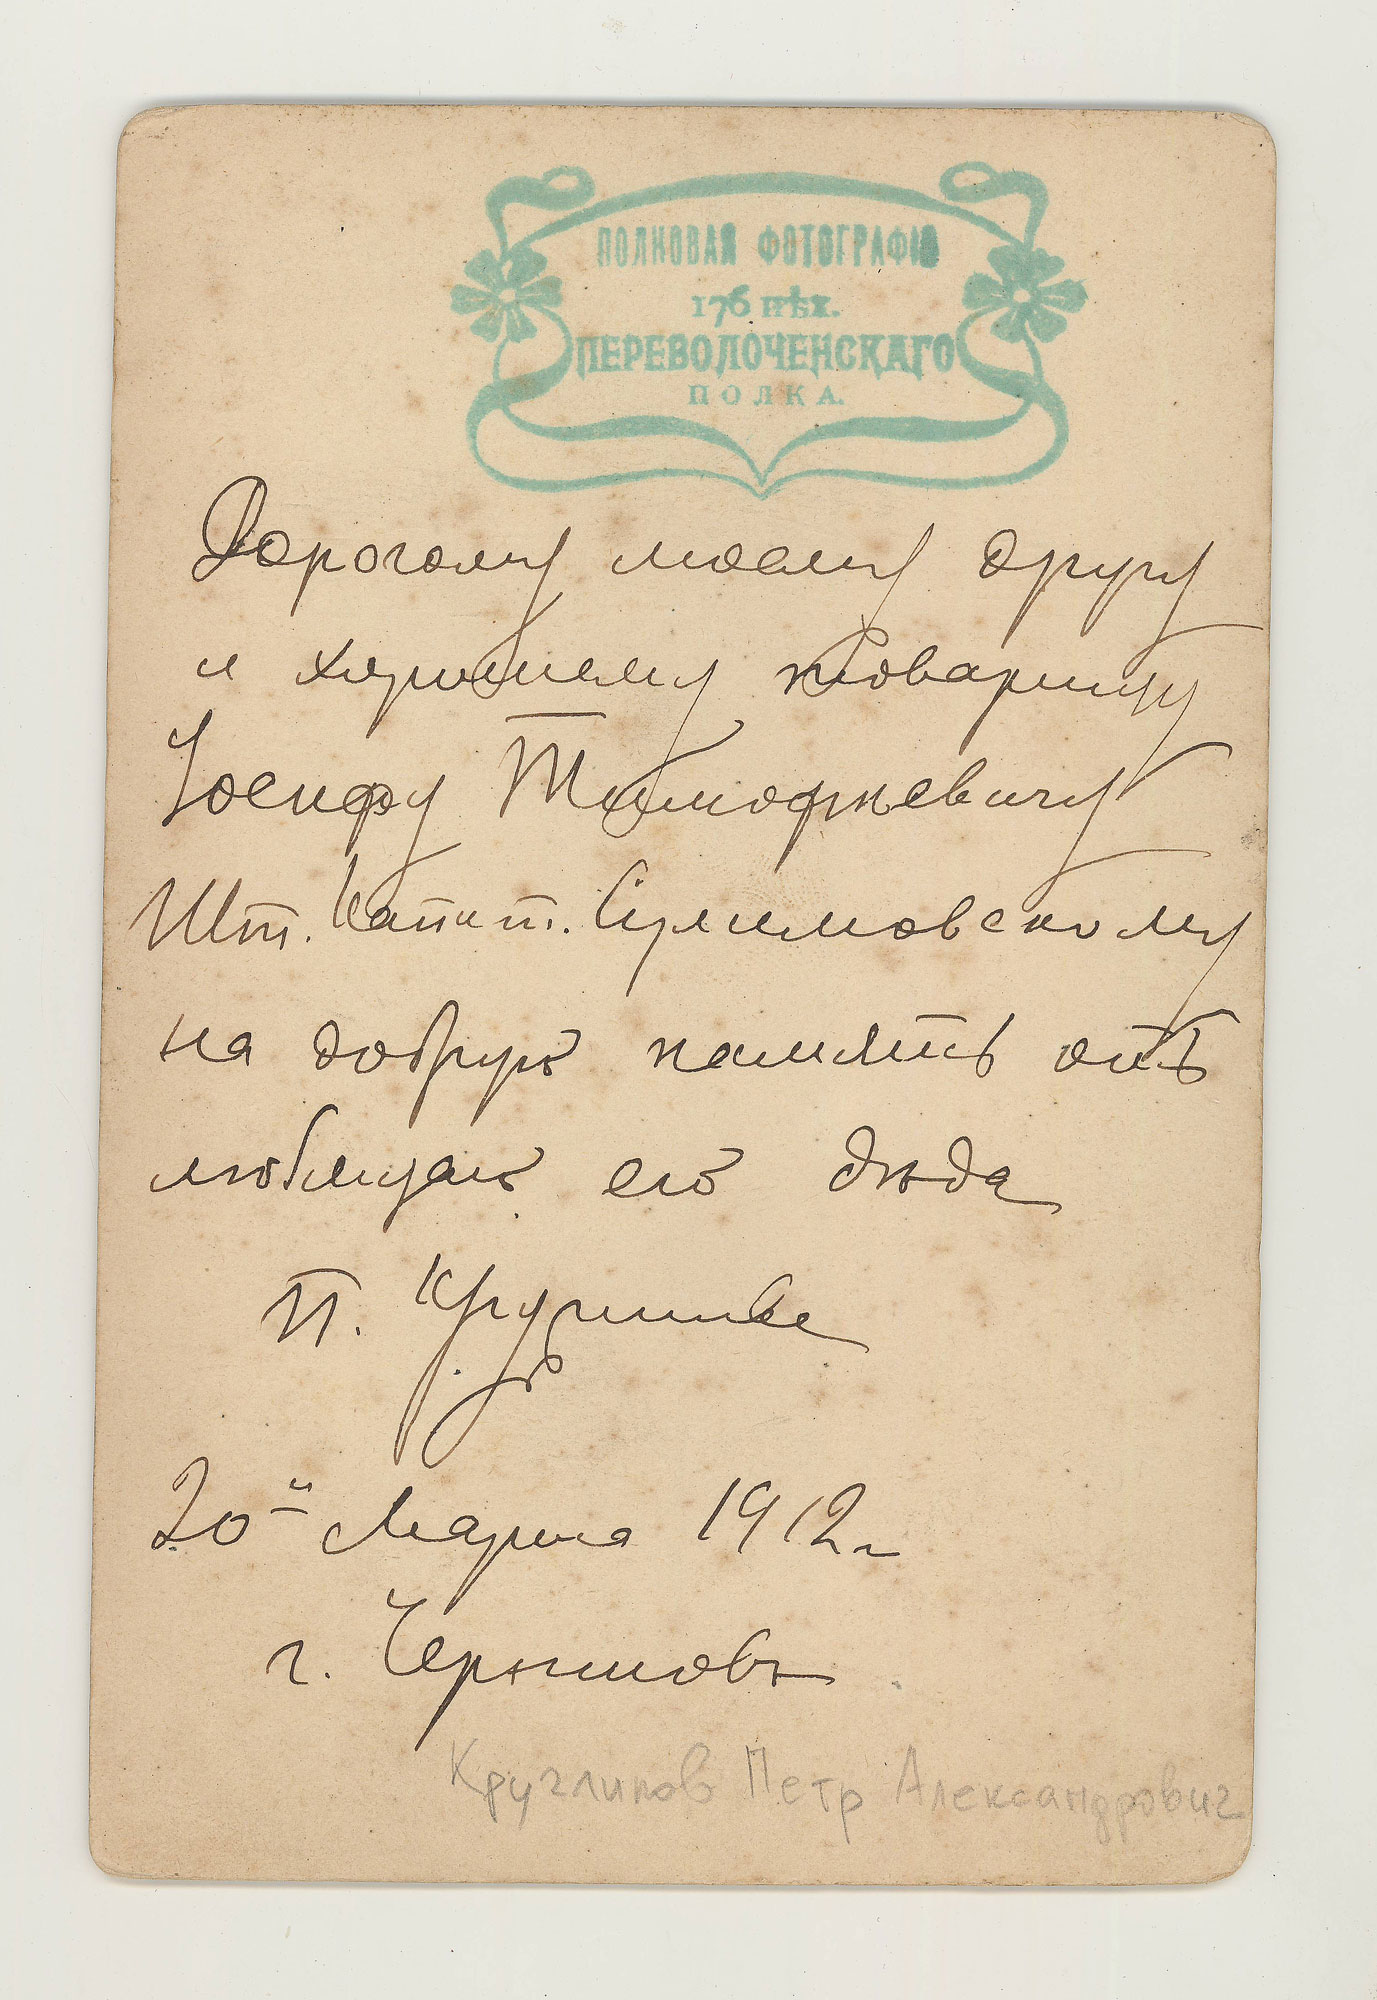 ПОЛКОВАЯ ФОТОГРАФІЯ
176 пѣх.
ПЕРЕВОЛОЧЕНСКАГО
ПОЛКА.
Дорогому моему другу
и хорошему товарищу
Іосифу Тимофѣевичу
Шт. Капит. Сулимовскому
на добрую память отъ
любящаго его дѣда
П.
20й Марта 1912 г.
г. Черниговъ
Круглипов Петр Александрович